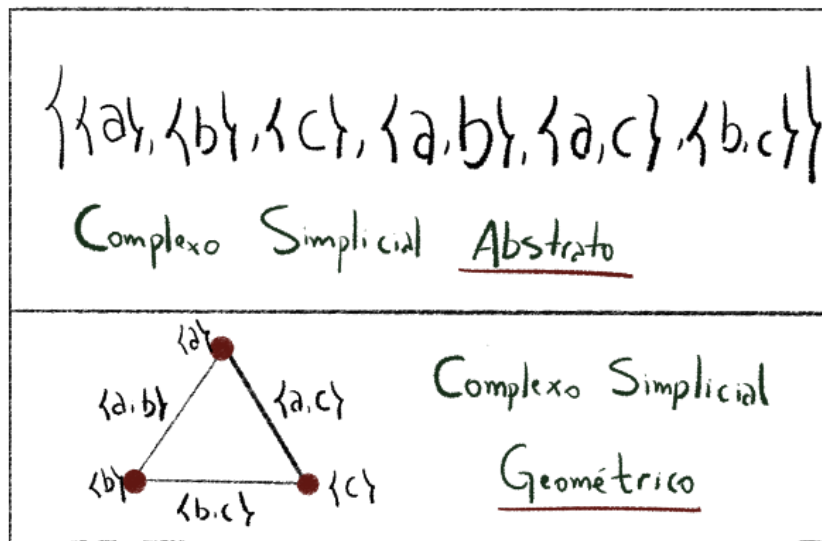 {{a}, {b}, {c}, {a,b}, {a,c}, {b,c}}
Complexo Simplicial Abstrato
{a}
{a,b} {a,c}
{b} {c}
{b,c}
Complexo Simplicial
Geométrico